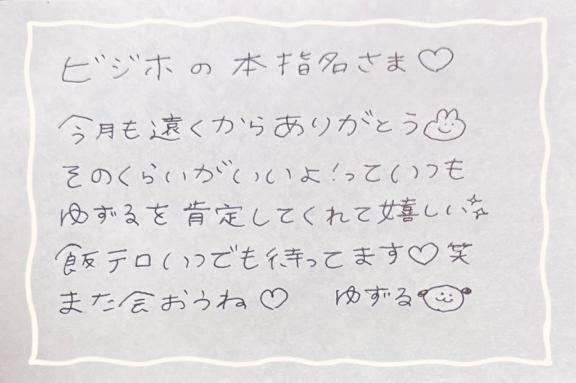 ビジホの本指名さま♡
今月も遠くからありがとう
そのくらいがいいよ!っていつも
ゆずるを肯定してくれて嬉しい
飯テロいつでも待ってます♡笑
また会おうね♡ ゆずる